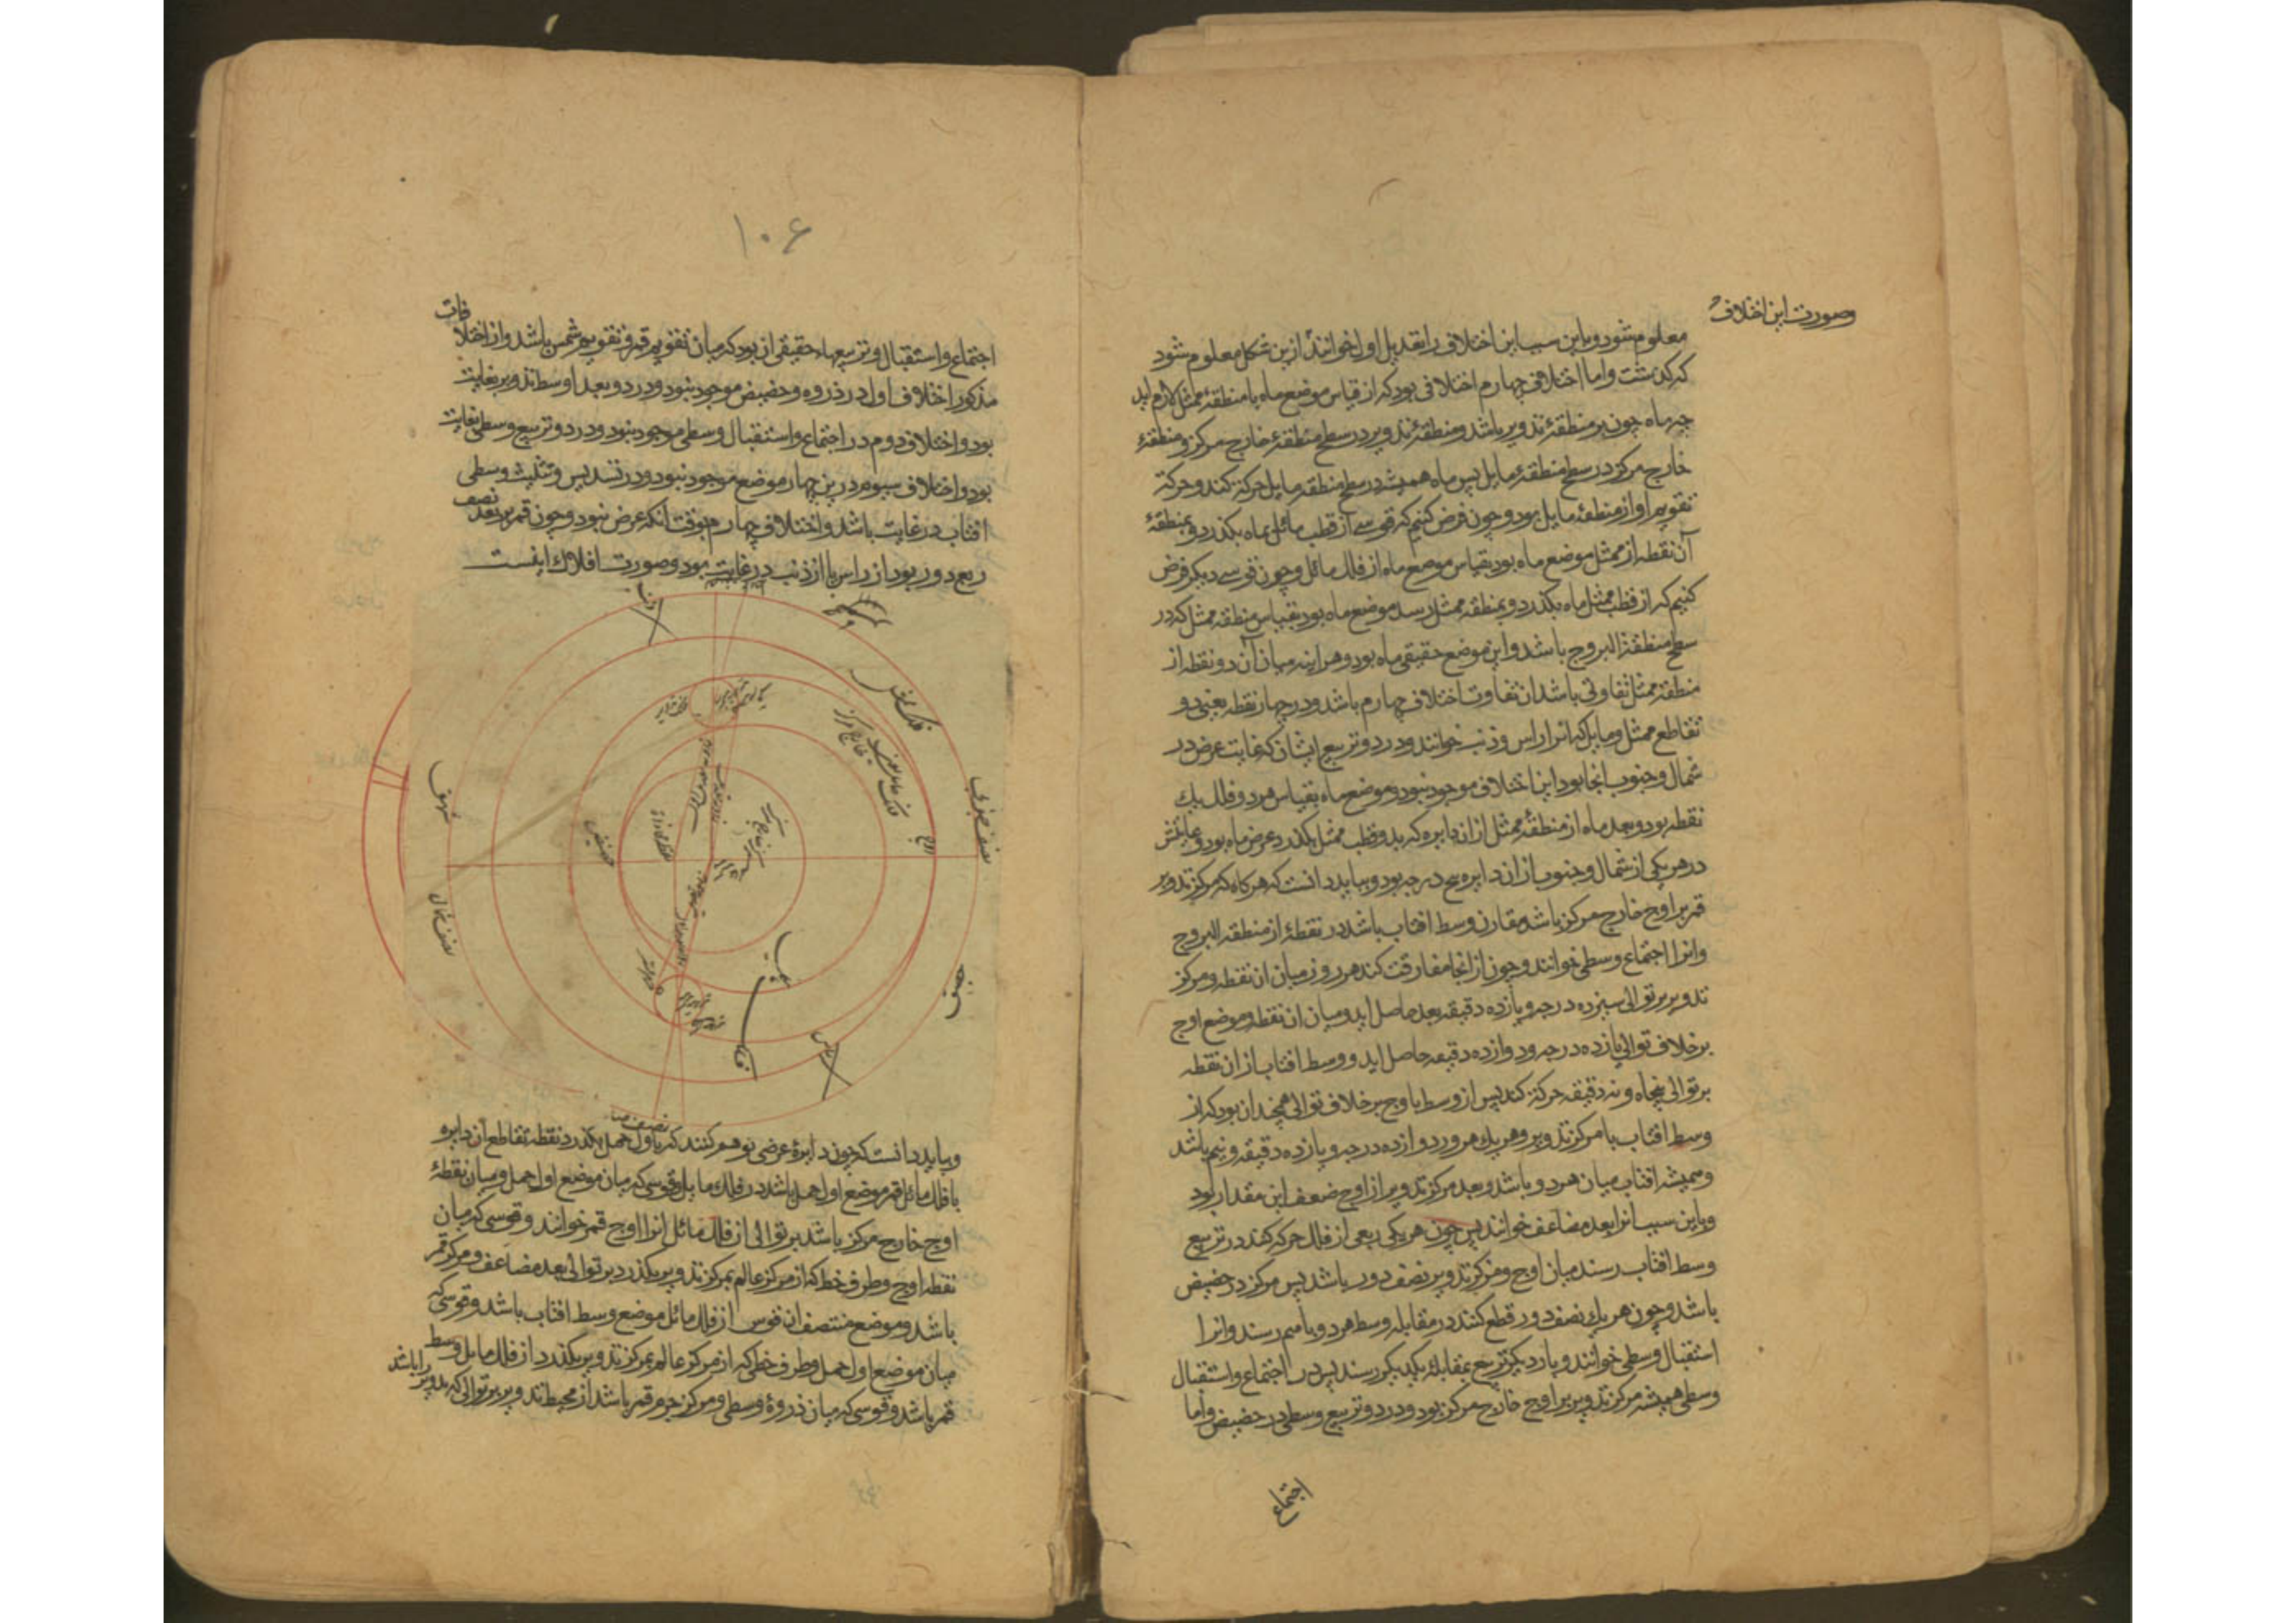 وصورت این اختلاف
معلوم شود و باین سبب این اختلاف را تعدیل اول خوانند از ین شکل معلوم شود
که کذشت واما اختلاف چهارم اختلافی بود که از قیاس موضع ماه با منطقهٔ ممثل لازم اید
جه ماه چون بر منطقهٔ تدویر باشد و منطقهٔ تدویر در سطح منطقهٔ خارج مرکز و منطقهٔ
خارج مرکز در سطح منطقهٔ مایل پس ماه همیشه در سطح منطقهٔ مایل حرکة کند و حرکة
تقویم او از منطقهٔ مایل بود و چون فرض کنیم که قوسی از قطب مائل بماه بکذرد و بمنطقهٔ
آن نقطه از ممثل موضع ماه بود بقیاس موضع ماه از فلک مائل و چون قوسی دیکر فرض
کنیم که از قطب ممثل ماه بکذرد و بمنطقه ممثل رسد موضع ماه بود بقیاس منطقه ممثل که در
سطح منطقة البروج باشد و این موضع حقیقی ماه بود و هر اینه میان آن دو نقطه از
منطقه ممثل تفاوتی باشد ان تفاوت اختلاف چهارم باشد و در چهار نقطه یعنی دو
تقاطع ممثل و مایل که انرا راس و ذنب خوانند و در دو تربیع ایشان که غایت عرض در
شمال و جنوب انجا بود این اختلاف موجود نبود و موضع ماه بقیاس هر دو فلک یک
نقطه بود و بعد ماه از منطقهٔ ممثل از ان دایره که بدو قطب ممثل بکذرد عرض ماه بود و غایتش
در هر یکی از شمال و جنوب از ان دایره پنج درجه بود و بباید دانست که هر کاه که مرکز تدویر
قمر بر اوج خارج مرکز باشد مقارن وسط افتاب باشد در نقطهٔ از منطقه البروج
وانرا اجتماع وسطی خوانند و چون از انجا مفارقت کند هر روز میان ان نقطه و مرکز
تدویر بر توالی سیزده درجه و یازده دقیقه بعد حاصل اید و میان ان نقطه و موضع اوج
بر خلاف توالی یازده درجه و دوازده دقیقه حاصل اید و وسط افتاب از ان نقطه
بر توالی پنجاه و نه دقیقه حرکة کند پس از وسط با اوج بر خلاف توالی همچندان بود که از
وسط افتاب با مرکز تدویر و هر یک هر روز دوازده درجه و یازده دقیقه و نیم باشد
و همیشه افتاب میان هر دو باشد و بعد مرکز تدویر از اوج ضعف این مقدار بود
و باین سبب انرا بعد مضاعف خوانند پس چون هر یکی ربعی از فلک حرکه کند در تربیع
وسط افتاب رسند میان اوج و مرکز تدویر نصف دور باشد پس مرکز در حضیض
باشد و چون هر یک نصف دور قطع کنند در مقابله وسط هر دو با هم رسند وانرا
استقبال وسطی خوانند و بار دیکر تربیع بمقابله یکدیکر رسند پس در اجتماع و استقبال
وسطی همیشه مرکز تدویر بر اوج خارج مرکز بود و در دو تربیع وسطی در حضیض واما
اجتماع
۱۰۶
اجتماع و استقبال و تربیعهاء حقیقی از بود که میان تقویم قمر و تقویم شمس باشد و از اختلافات
مذکور اختلاف اول در ذروه و حضیض موجود نبود و در دو بعد اوسط تدویر بغایت
بود و اختلاف دوم در اجتماع و استقبال وسطی موجود نبود و در دو تربیع وسطی بغایت
بود و اختلاف سیوم درین چهار موضع موجود نبود و در تسدیس و تثلیث وسطی
افتاب در غایت باشد و اختلاف چهارم بوقت انکه عرض نبود و چون قمر بر بعد نصف
ربع دور بود از راس یا از ذنب در غایت بود و صورت افلاک اینست
ذنب
فلک ممثل
خارج مرکز
اوج
نصف جنوبی
حضیض
نصف شمالی
راس
و بباید دانست که چون دایرهٔ عرضی توهم کنند که باول حمل بکذرد نقطه تقاطع آن دایره
با فلک مائل قمر موضع اول حمل باشد در فلک مایل و قوسی که میان موضع اول حمل و میان نقطهٔ
اوج خارج مرکز باشد بر توالی از فلک مائل انرا اوج قمر خوانند و قوسی که میان
نقطه اوج و طرف خط که از مرکز عالم بمرکز تدویر بکذرد بر توالی بعد مضاعف و مرکز قمر
باشد و موضع منتصف ان قوس از فلک مائل موضع وسط افتاب باشد و قوسی که
میان موضع اول حمل و طرف خط که از مرکز عالم بمرکز تدویر بکذرد از فلک مایل وسط
قمر باشد و قوسی که میان ذروهٔ وسطی و مرکز جرم قمر باشد از محیط تدویر بر توالی که تدویر را باشد